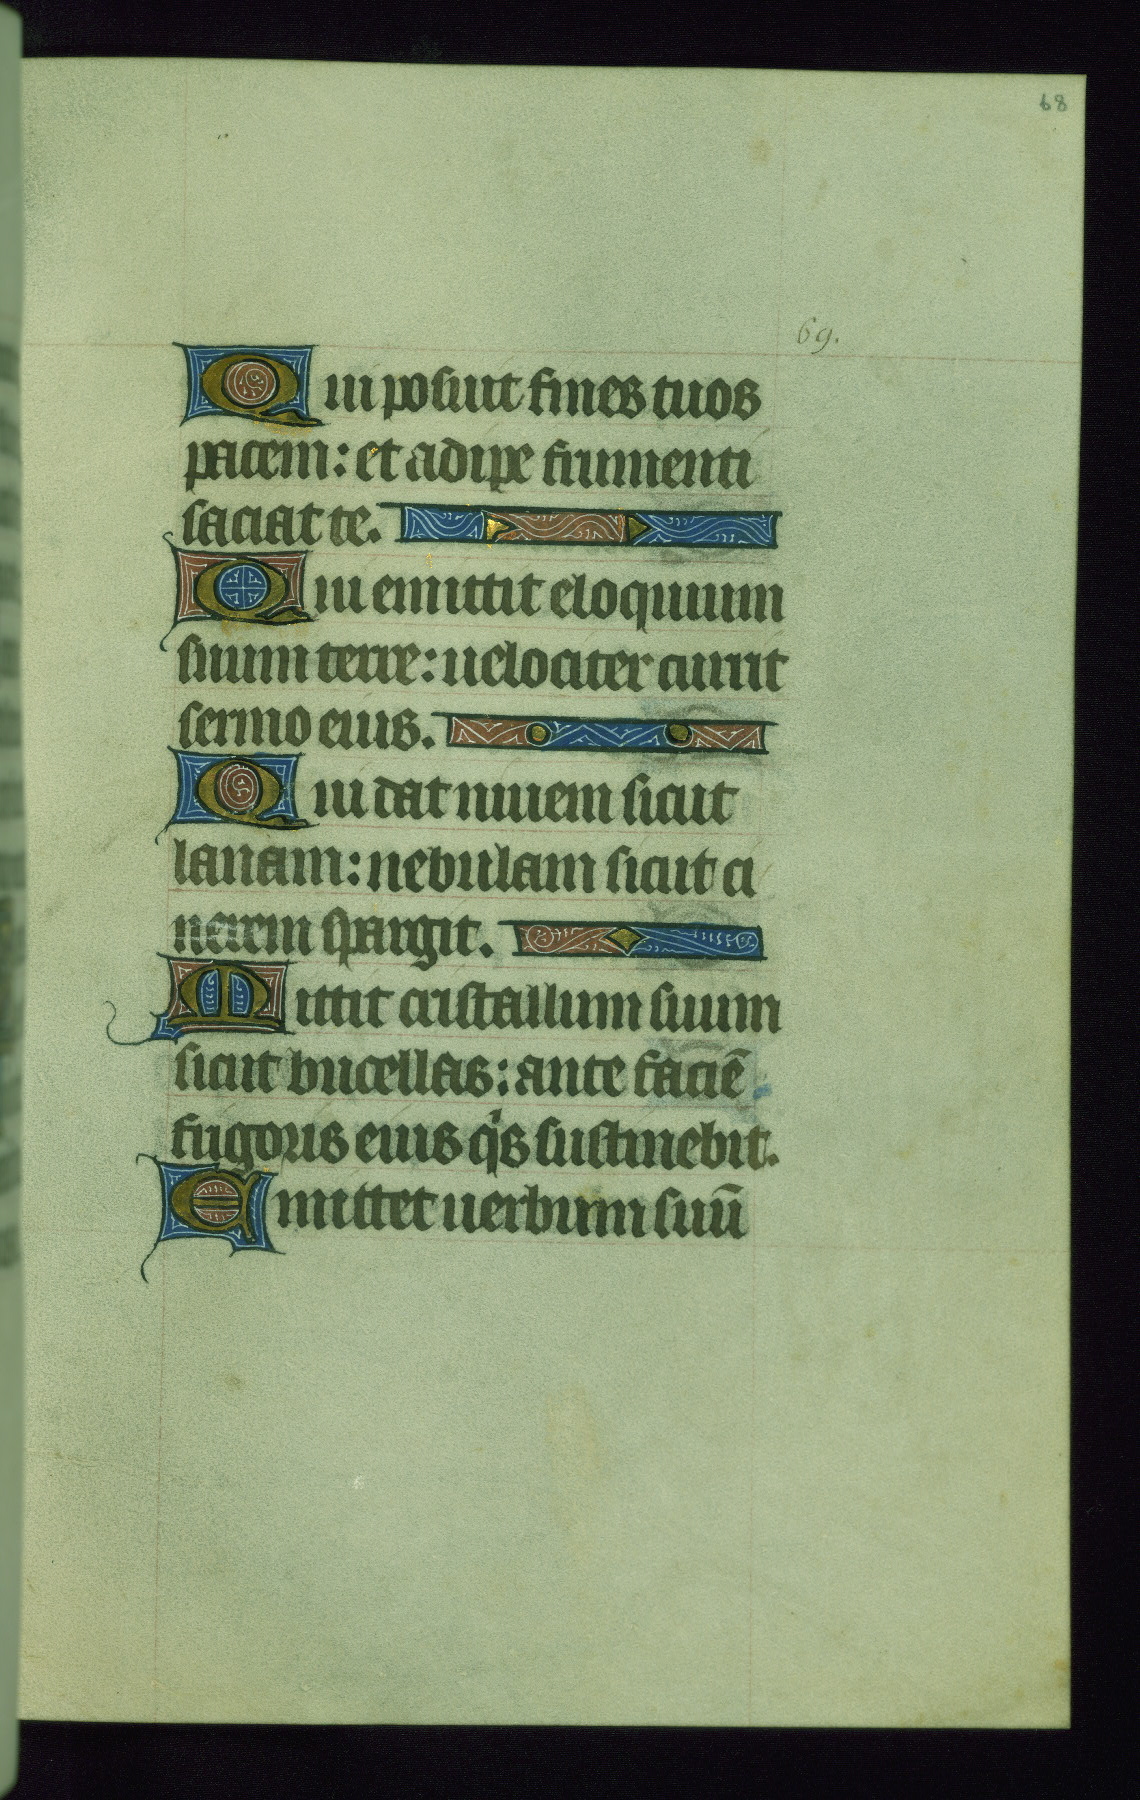 68
69.
Qui posuit fines tuos
pacem: et adipe frumenti
saciat te.
Qui emittit eloquium
suum terre: uelociter currit
sermo eius.
Qui dat niuem sicut
lanam: nebulam sicut ci
nerem spargit.
Mittit cristallum suum
sicut bucellas: ante faciē
frigoris eius q̇s sustinebit.
Emittet uerbum suū